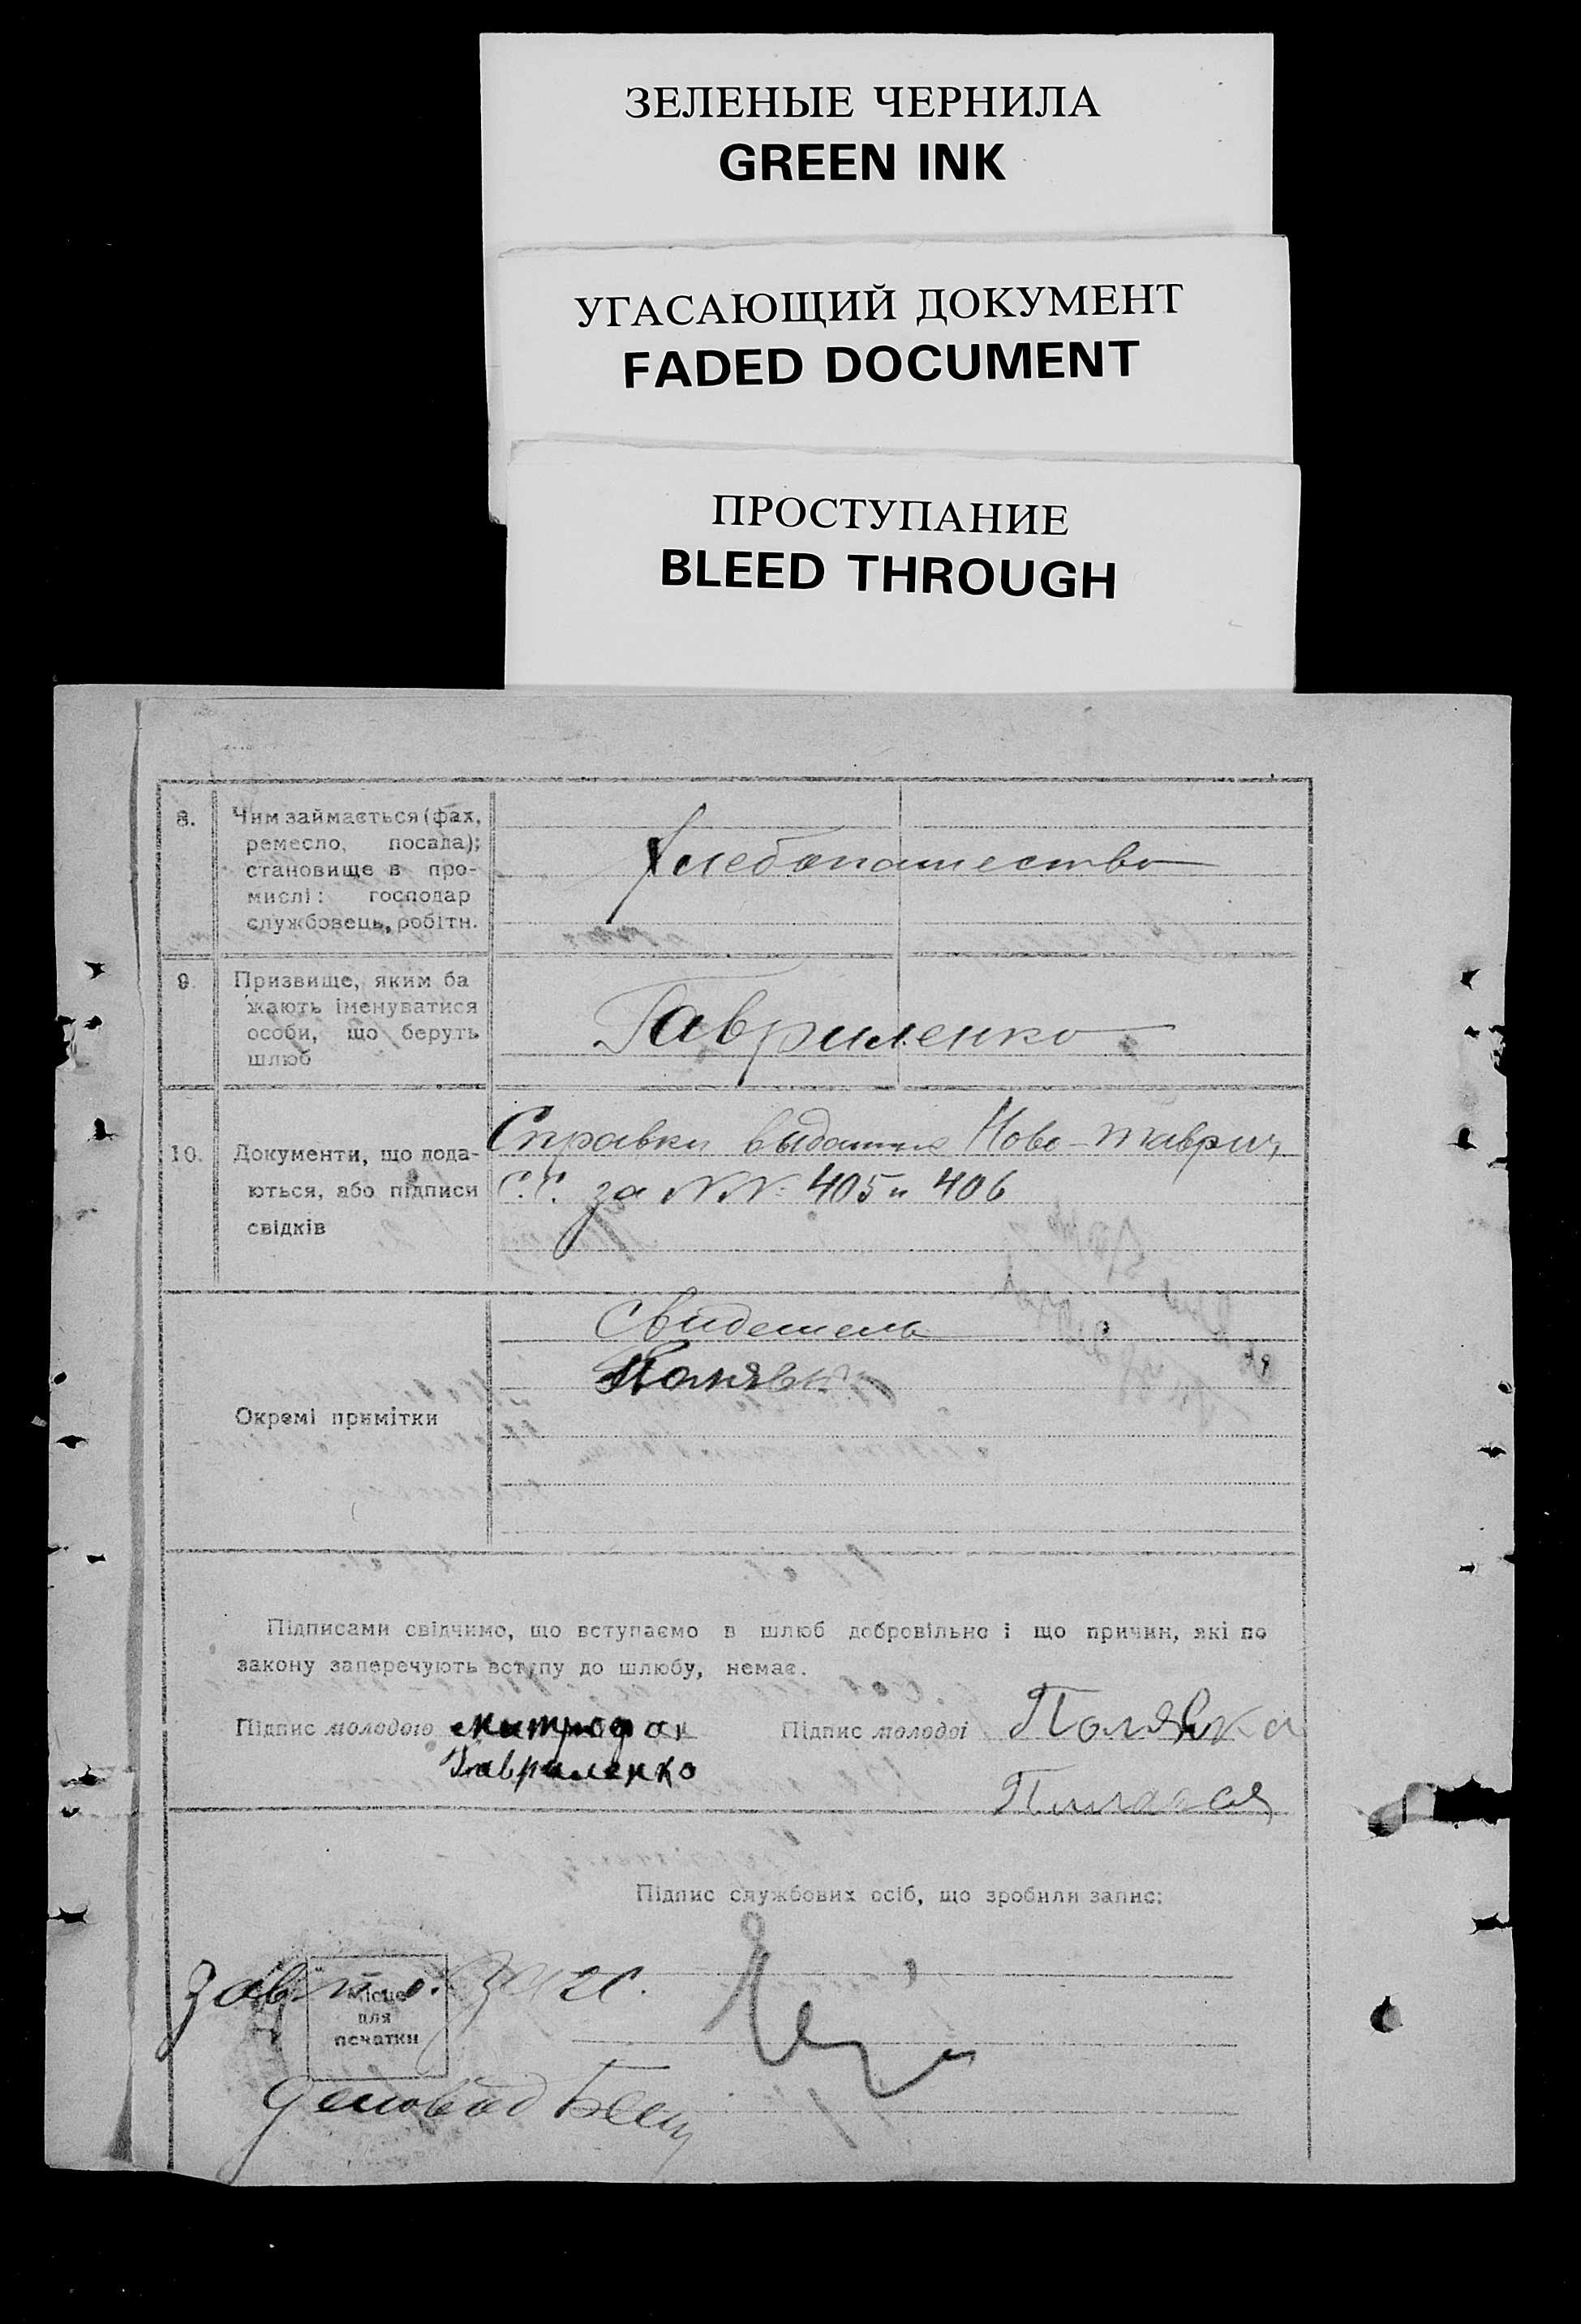 ЗЕЛЕНЫЕ ЧЕРНИЛА
GREEN INK
УГАСАЮЩИЙ ДОКУМЕНТ
FADED DOCUMENT
ПРОСТУПАНИЕ
BLEED THROUGH
8. Чим займається (фах,
ремесло, посада);
становище в про-
мислі: господар
службовець, робітн.
Хлебопашество
9. Призвище, яким ба
жають іменуватися
особи, що беруть
шлюб
Гавриленко
10. Документи, що пода-
ються, або підписи
свідків
Справки выданные Ново-таврич,
С.С. за №№ 405 и 406
Окремі примітки
Свидетель
Підписами свідчимо, що вступаємо в шлюб добровільно і що причин, які по
закону заперечують вступу до шлюбу, немає.
Підпис молодого Митрофан
Гавриленко
Підпис молодої Полявка
Підпис службових осіб, що зробили запис:
Місце
для
печатки